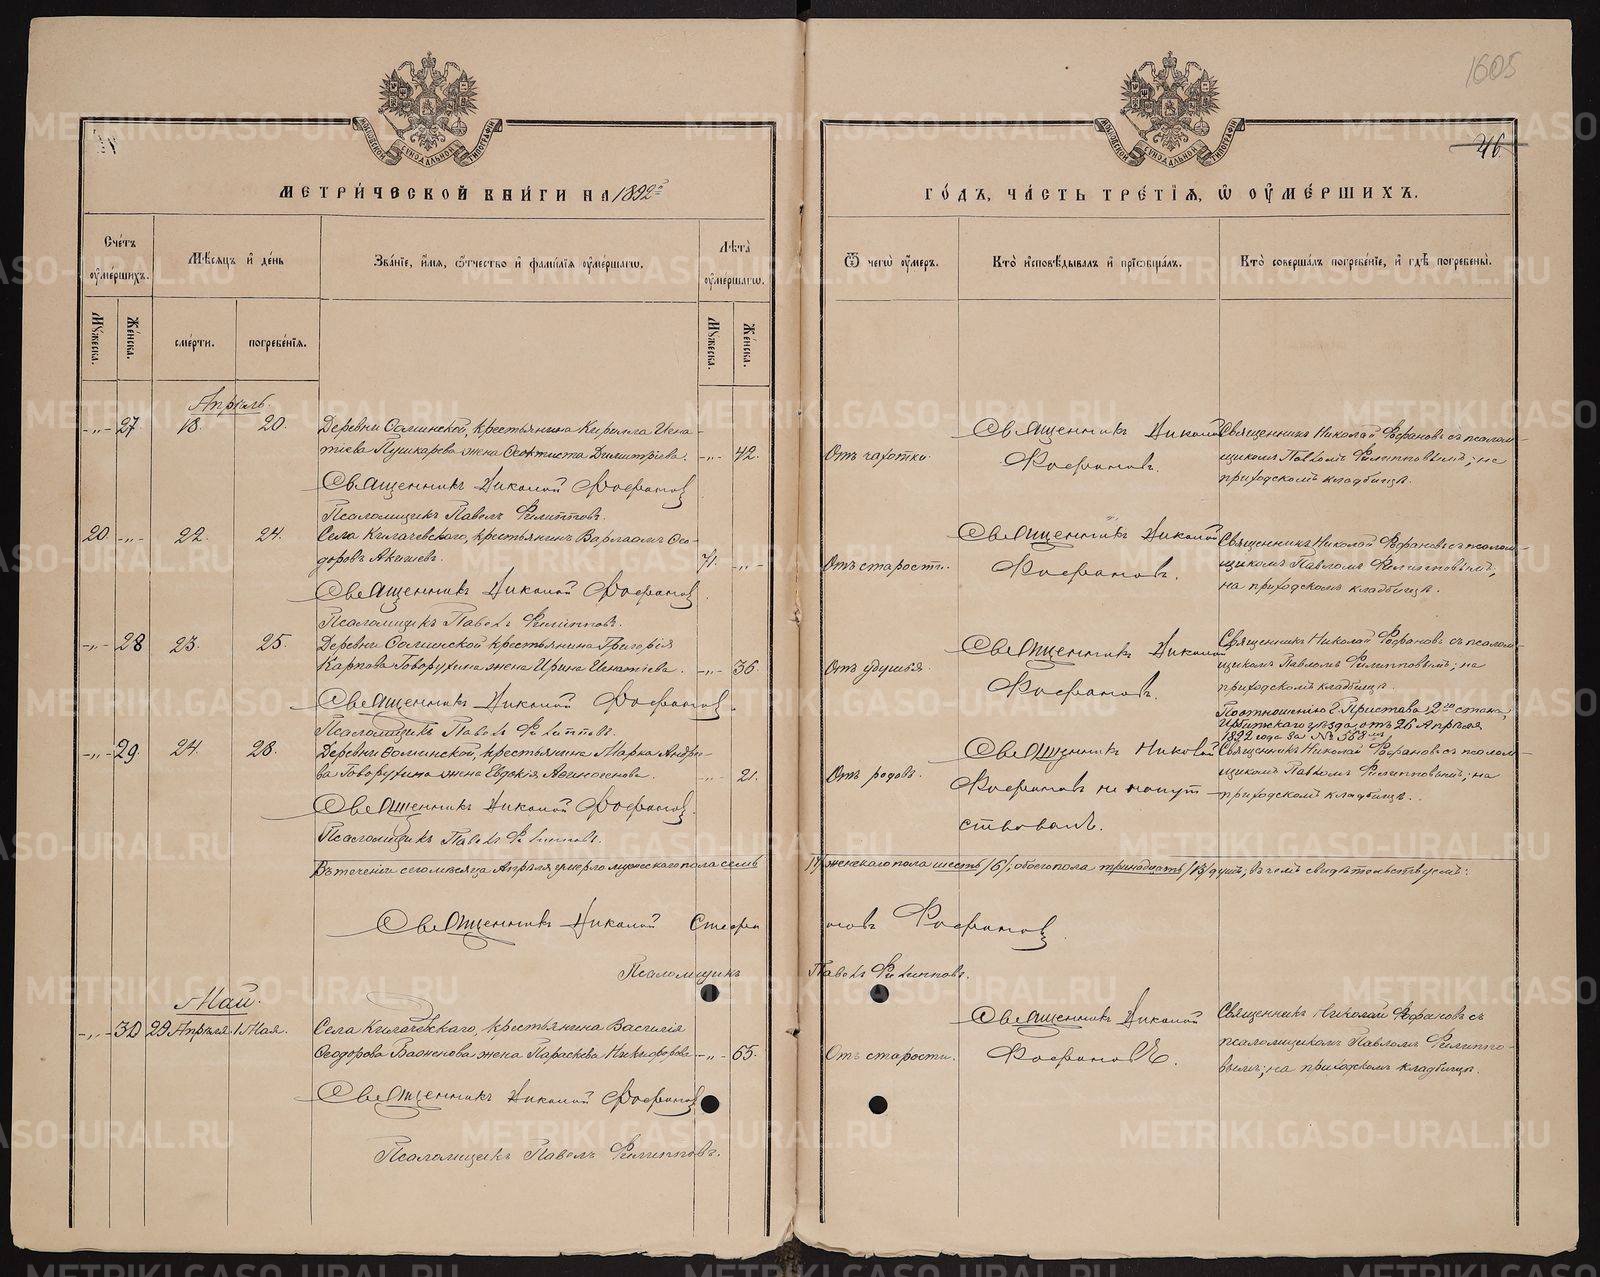 1605
46
МОСКОВСКОЙ СѴНОДАЛЬНОЙ ТИПОГРАФІИ
МОСКОВСКОЙ СѴНОДАЛЬНОЙ ТИПОГРАФІИ
МЕТРИ́ЧЕСКОЙ КНИ́ГИ НА 1892й
ГО́ДЪ, ЧА́СТЬ ТРЕ́ТІѦ, Ѡ ОУМЕ́РШИХЪ.
Сче́тъ оуме́ршихъ.
Мѣ́сяцъ и де́нь
Зва́ніе, и́мя, ѻ́тчество и фами́лія оуме́ршагѡ.
Лѣ́та оуме́ршагѡ.
Ѿ чегѡ̀ оу́меръ.
Кто̀ и҆сповѣ́дывалъ и прїѡбща́лъ.
Кто̀ соверша́лъ погребе́ніе, и гдѣ̀ погребены̀.
Му́жеска.
Же́нска.
сме́рти.
погребе́нія.
Му́жеска.
Же́нска.
Апрѣль.
-„- 27 18. 20. Деревни Соминской, крестьянина Кирилла Игна-
тіева Пушкарева жена Ѳеоктиста Димитріева. -„- 42.
Священникъ Николай Фофановъ
Псаломщикъ Павелъ Филипповъ.
Отъ чахотки.
Священникъ Николай
Фофановъ.
Священникъ Николай Фофановъ съ псалом-
щикомъ Павломъ Филипповымъ; на
приходскомъ кладбищѣ.
20. -„- 22. 24. Села Кылачевскаго, крестьянинъ Варлаамъ Ѳео-
доровъ 71. -„-
Священникъ Николай Фофановъ.
Псаломщикъ Павелъ Филипповъ.
Отъ старости.
Священникъ Николай
Фофановъ.
Священникъ Николай Фофановъ съ псалом-
щикомъ Павломъ Филипповымъ;
на приходскомъ кладбищѣ.
-„- 28 23. 25. Деревни Соминской крестьянина Григорія
Карпова Говорухина жена Ирина Игнатіева. -„- 36.
Священникъ Николай Фофановъ.
Псаломщикъ Павелъ Филипповъ.
Отъ удушья.
Священникъ Николай
Фофановъ.
Священникъ Николай Фофановъ съ псалом-
щикомъ Павломъ Филипповымъ; на
приходскомъ кладбищѣ.
-„- 29 24. 28. Деревни Соминской, крестьянина Марка Андре-
ева Говорухина жена Евдокія -„- 21.
Священникъ Николай Фофановъ.
Псаломщикъ Павелъ Филипповъ.
Отъ родовъ.
Священникъ Николай
Фофановъ не напут-
ствовалъ.
По отношенію Г. Пристава 2го стана,
Ирбитскаго уѣзда, отъ 26 Апрѣля
1892 года за № 558мъ
Священникъ Николай Фофановъ съ псалом-
щикомъ Павломъ Филипповымъ; на
приходскомъ кладбищѣ.
Въ теченіи сего мѣсяца Апрѣля умерло мужескаго пола семь /7/ женскаго пола шесть /6/, обоего пола тринадцать /13/ душъ, въ чемъ свидѣтельствуемъ:
Священникъ Николай Стефановъ Фофановъ
Псаломщикъ Павелъ Филипповъ.
Май.
-„- 30 29 Апрѣля 1 Мая. Села Кылачевскаго, крестьянина Василія
Ѳеодорова Важенова жена Параскева Никифорова -„- 65.
Священникъ Николай Фофановъ
Псаломщикъ Павелъ Филипповъ.
Отъ старости.
Священникъ Николай
Фофановъ.
Священникъ Николай Фофановъ съ
псаломщикомъ Павломъ Филиппо-
вымъ; на приходскомъ кладбищѣ.
METRIKI.GASO-URAL.RU